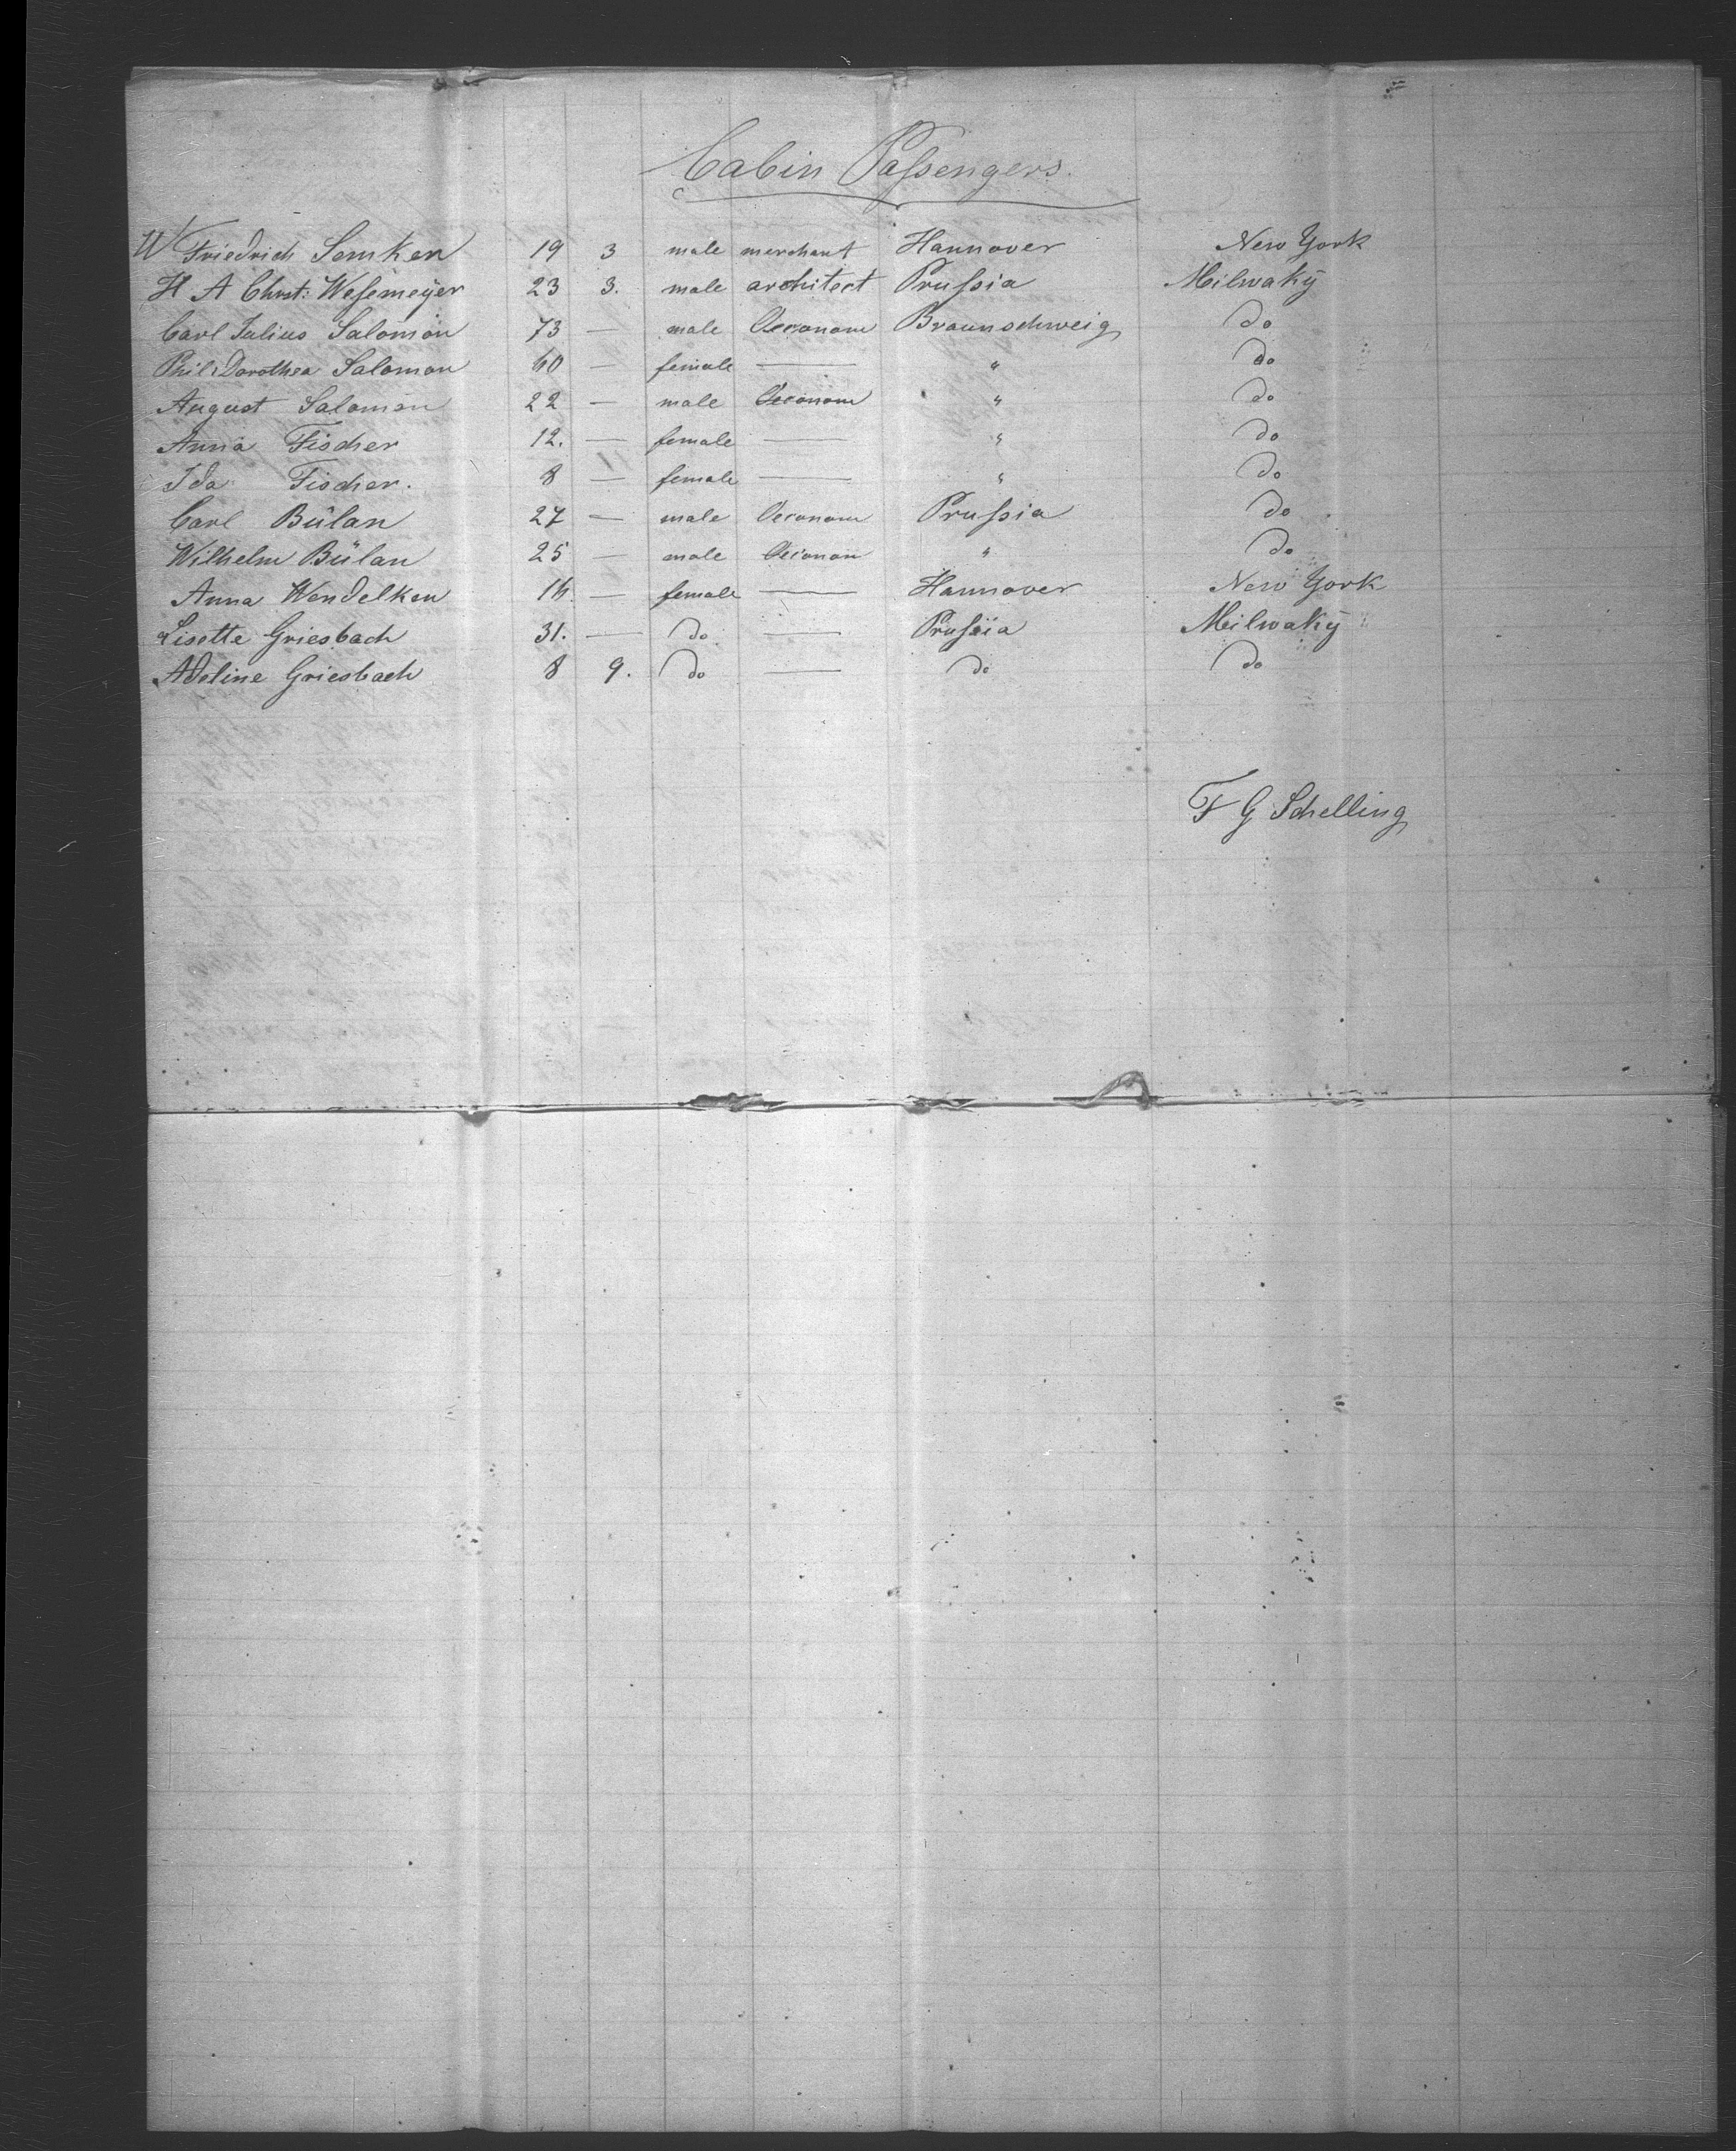 Cabin Passengers.
W Friedrich Semken 19 3 male merchant Hannover New York
H A Chrst: Wesemeyer 23 3. male architect Prussia Milwaky
Carl Julius Salomon 73 — male Oeconom Braunschweig do
Phil: Dorothea Salomon 60 — female — " do
August Salomon 22 — male Oeconom " do
Anna Fischer 12. — female — " do
Ida Fischer. 8 — female — " do
Carl Bülan 27 — male Oeconom Prussia do
Wilhelm Bülan 25 — male Oeconom " do
Anna Wendelken 16 — female — Hannover New York
Lisette Griesbach 31. — do — Prussia Milwaky
Adeline Griesbach 8 9. do — do do
F G Schelling